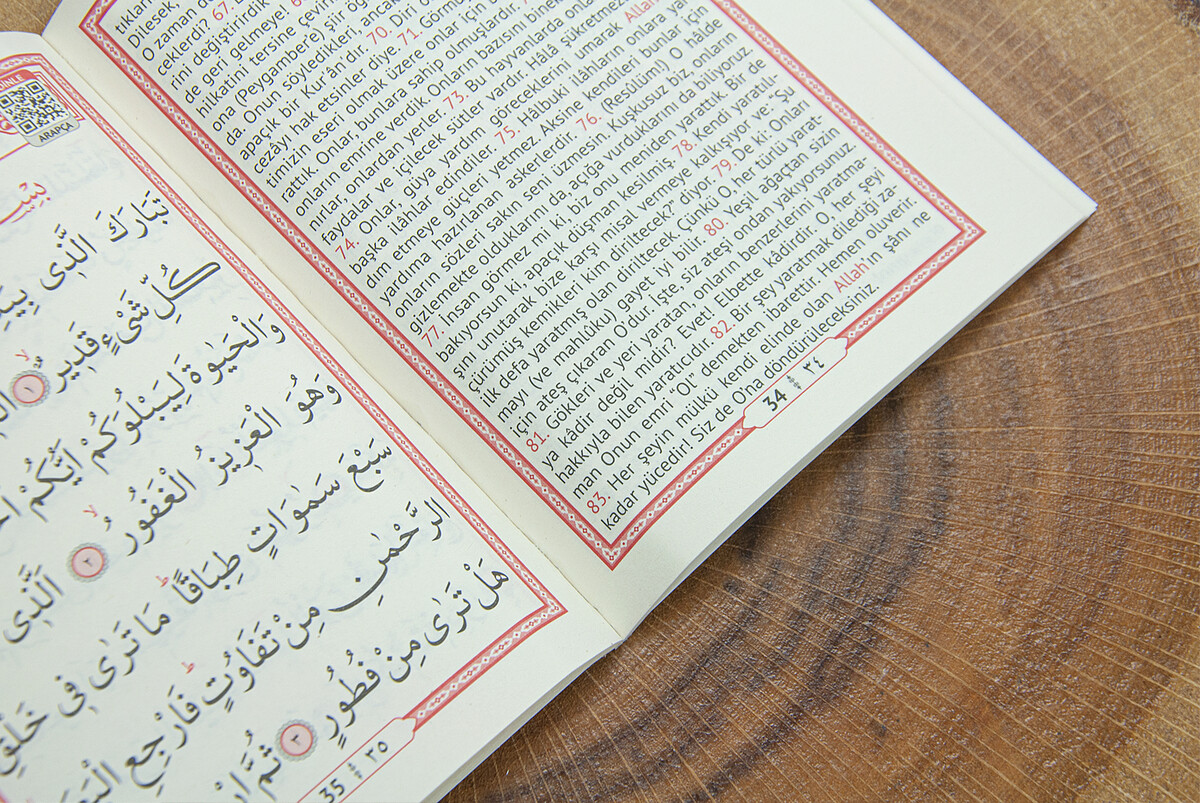 Dilesek,
O zaman de
ceklerdi? 67.
rini değiştirirdik
de geri gelmeye.
hilkatini tersine
ona (Peygambere) şiir
da. Onun söyledikleri,
apaçık bir Kur'ân'dır. 70. Diri
cezâyı hak etsinler diye. 71.
timizin eseri olmak üzere onlar için
rattık. Onlar, bunlara sahip olmuşlardır.
onların emrine verdik. Onların bazısını
nırlar, onlardan yerler. 73. Bu hayvanlarda
faydalar ve içilecek sütler vardır. Hâlâ
74. Onlar, güya yardım göreceklerini umarak Allah
başka ilâhlar edindiler. 75. Hâlbuki ilâhların onlara yar-
dım etmeye güçleri yetmez. Aksine kendileri bunlar için
yardıma hazırlanan askerlerdir. 76. (Resûlüm!) O hâlde
onların sözleri sakın seni üzmesin. Kuşkusuz biz onların
gizlemekte olduklarını da, açığa vurduklarını da biliyoruz.
77. İnsan görmez mi ki, biz onu meniden yarattık. Bir de
bakıyorsun ki, apaçık düşman kesilmiş. 78. Kendi yaratılı-
şını unutarak bize karşı misal vermeye kalkışıyor ve: "Şu
çürümüş kemikleri kim diriltecek?" diyor. 79. De ki: Onları
ilk defa yaratmış olan diriltecek. Çünkü O, her türlü yarat-
mayı (ve mahlûku) gayet iyi bilir. 80. Yeşil ağaçtan sizin
için ateş çıkaran O'dur. İşte, siz ateşi ondan yakıyorsunuz.
81. Gökleri ve yeri yaratan, onların benzerlerini yaratma-
ya kâdir değil midir? Evet! Elbette kâdirdir. O, her şeyi
hakkıyla bilen yaratıcıdır. 82. Bir şey yaratmak dilediği za-
man Onun emri "Ol" demekten ibarettir. Hemen oluverir.
83. Her şeyin mülkü kendi elinde olan Allah'ın şânı ne
kadar yücedir! Siz de O'na döndürüleceksiniz.
34 ٣٤
DİNLE
ARAPÇA
تَبَارَكَ الَّذ۪ي
كُلِّ شَيْءٍ قَد۪يرٌۙ ﴿١﴾
وَالْحَيٰوةَ لِيَبْلُوَكُمْ اَيُّكُمْ
وَهُوَ الْعَز۪يزُ الْغَفُورُۙ ﴿٢﴾ اَلَّذ۪ي
سَبْعَ سَمٰوَاتٍ طِبَاقًاۜ مَا تَرٰى ف۪ي خَلْقِ
الرَّحْمٰنِ مِنْ تَفَاوُتٍۜ فَارْجِعِ
هَلْ تَرٰى مِنْ فُطُورٍ ﴿٣﴾ ثُمَّ
35 ٣٥